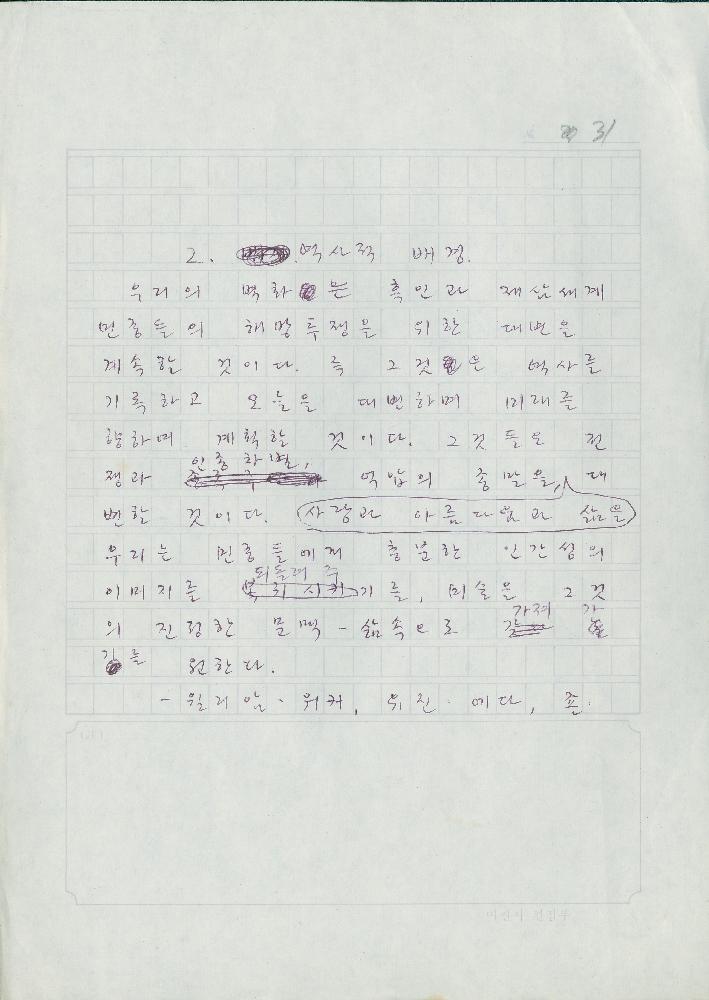 31
2. 역사적 배경.
우리의 벽화는 흑인과 제삼세계
민중들의 해방투쟁을 위한 대변을
계속할 것이다. 즉 그것은 역사를
기록하고 오늘을 대변하며 미래를
향하며 계획할 것이다. 그것들은 전
인종차별,
쟁과 억압의 종말을, 대
변할 것이다. 사랑과 아름다움과 삶을
우리는 민중들에게 충분한 인간성의
되돌려 주
이미지를 복귀시키기를, 미술을 그것
가져가
의 진정한 문맥-삶속으로
기를 원한다.
-윌리암·워커, 유진·에다, 죤·
미진사 편집부